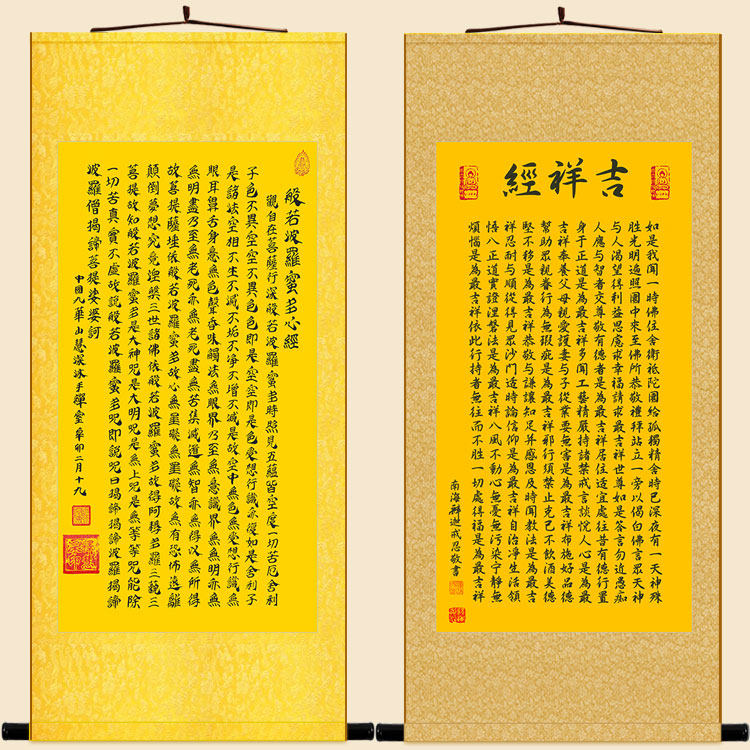 般若波羅蜜多心經
觀自在菩薩行深般若波羅蜜多時照見五蘊皆空度一切苦厄舍利
子色不異空空不異色色即是空空即是色受想行識亦復如是舍利子
是諸法空相不生不滅不垢不淨不增不減是故空中無色無受想行識無
眼耳鼻舌身意無色聲香味觸法無眼界乃至無意識界無無明亦無
無明盡乃至無老死亦無老死盡無苦集滅道無智亦無得以無所得
故菩提薩埵依般若波羅蜜多故心無罣礙無罣礙故無有恐怖遠離
顛倒夢想究竟涅槃三世諸佛依般若波羅蜜多故得阿耨多羅三藐三
菩提故知般若波羅蜜多是大神咒是大明咒是無上咒是無等等咒能除
一切苦真實不虛故說般若波羅蜜多咒即說咒曰揭諦揭諦波羅揭諦
波羅僧揭諦菩提娑婆訶
中國九華山慧深沐手禪室辛卯二月十九
吉祥經
如是我聞一時佛住舍衛祇陀園給孤獨精舍時已深夜有一天神殊
勝光明遍照園中來至佛所恭敬禮拜站立一旁以偈白佛言眾天神
與人渴望得利益思慮求幸福請求最吉祥世尊如是答言勿近愚痴
人應與智者交尊敬有德者是為最吉祥居住適宜處往昔有德行置
身于正道是為最吉祥多聞工藝精嚴持諸禁戒言談悅人心是為最
吉祥奉養父母親愛護妻與子從業要無害是為最吉祥布施好品德
幫助眾親眷行為無瑕疵是為最吉祥邪行須禁止克己不飲酒美德
堅不移是為最吉祥恭敬與謙讓知足并感恩及時聞教法是為最吉
祥忍耐與順從得見眾沙門適時論信仰是為最吉祥自治淨生活領
悟八正道實證涅槃法是為最吉祥八風不動心無憂無污染寧靜無
煩惱是為最吉祥依此行持者無往而不勝一切處得福是為最吉祥
南海釋戒恩敬書